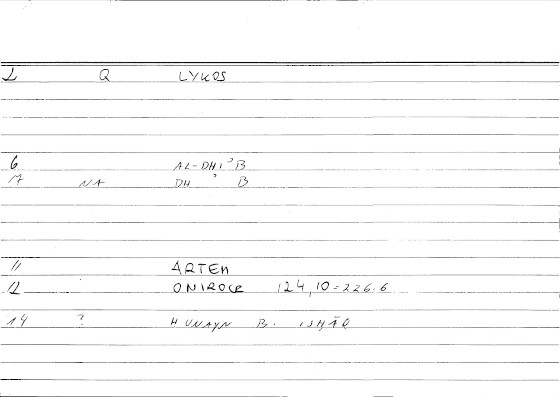 1 Q LYKOS
6 AL-DHIʾB
17 NA DH ʾ B
11 ARTEM
12 ONIROCR 124,10=226.6
14 ? HUNAYN B. ISHĀQ